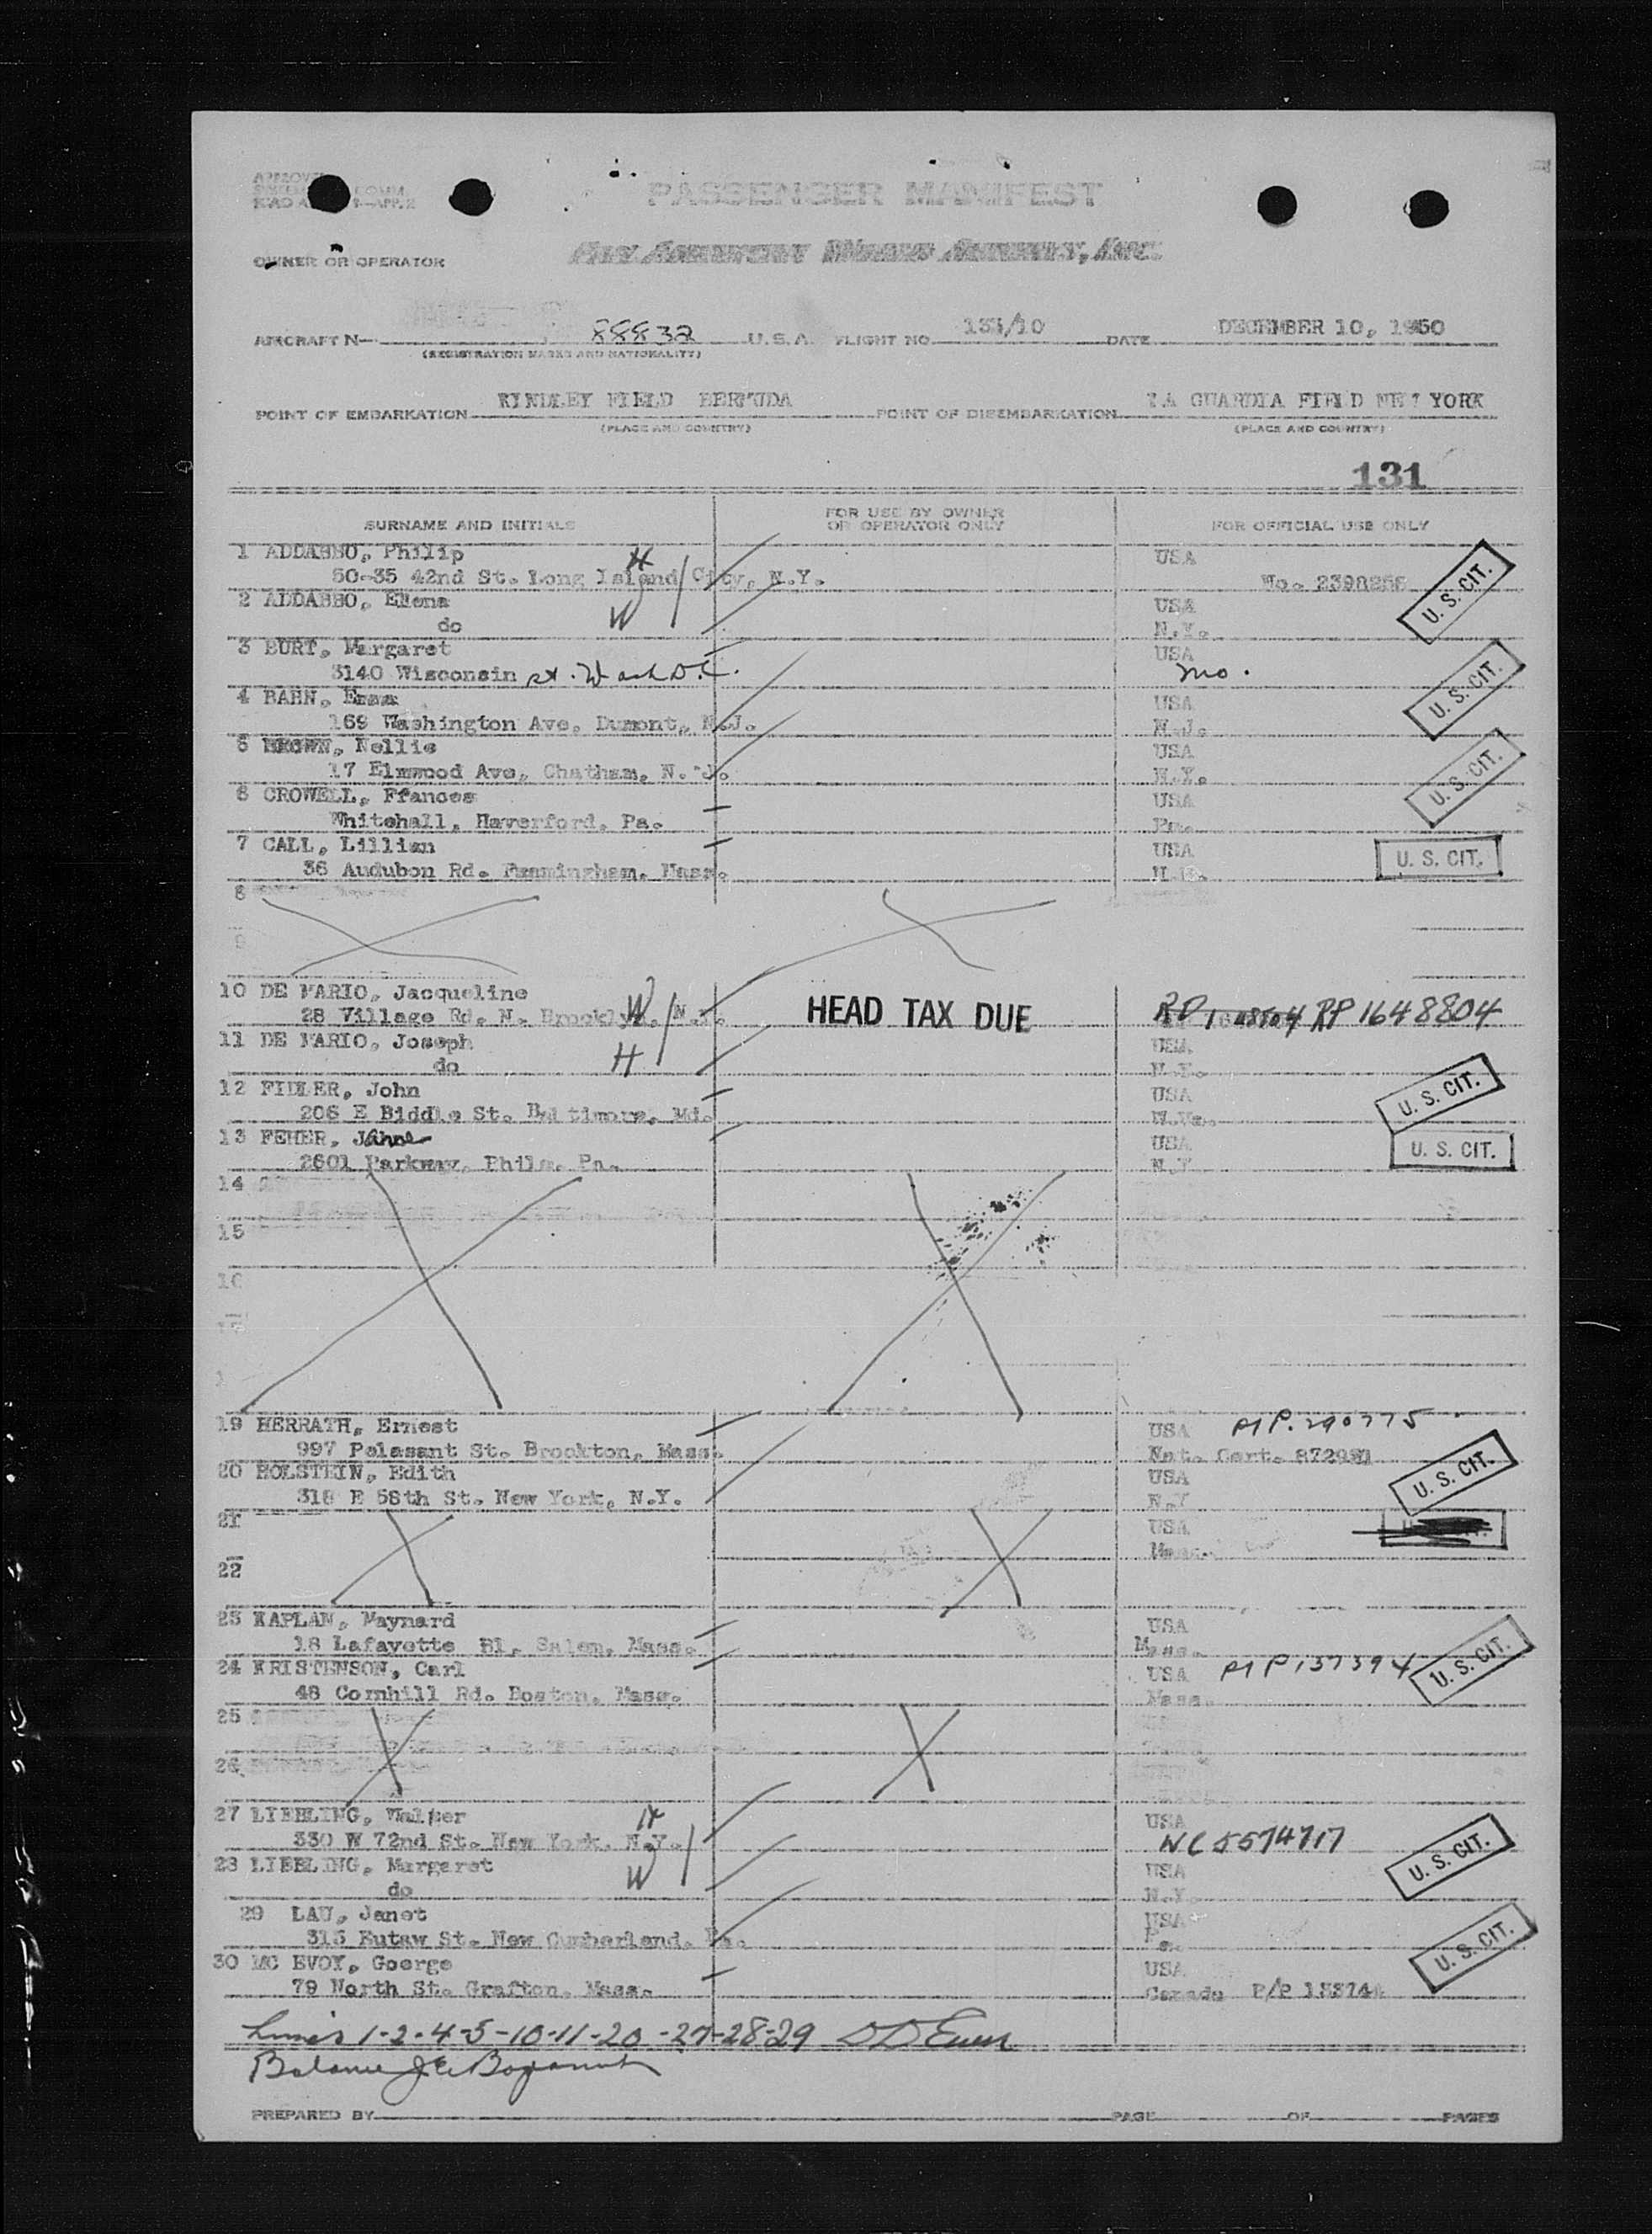 PASSENGER MANIFEST
OWNER OR OPERATOR
AIRCRAFT N— 88832 U.S.A. FLIGHT NO. 131/10 DATE DECEMBER 10, 1950
(REGISTRATION MARKS AND NATIONALITY)
POINT OF EMBARKATION KINDLEY FIELD BERMUDA POINT OF DISEMBARKATION LA GUARDIA FIELD NEW YORK
(PLACE AND COUNTRY) (PLACE AND COUNTRY)
131
SURNAME AND INITIALS FOR USE BY OWNER OR OPERATOR ONLY FOR OFFICIAL USE ONLY
1 ADDABBO, Philip H USA
50-35 42nd St. Long Island City, N.Y. No. U. S. CIT.
2 ADDABBO, Elena USA
do W N.Y.
3 BURT, Margaret USA
3140 Wisconsin st. Wash D.C. Mo. U. S. CIT.
4 BAHN, USA
169 Washington Ave, Dumont, N.J. N.J.
5 BROWN, Nellie USA
17 Elmwood Ave, Chatham, N. J. N.Y. U. S. CIT.
6 CROWELL, Ffances USA
Whitehall, Haverford, Pa. Pa.
7 CALL, Lillian USA
36 Audubon Rd. Framingham, Mass. U. S. CIT.
8
9
10 DE MARIO, Jacqueline W
28 Village Rd. N. Brooklyn, N.Y. HEAD TAX DUE RP 1648804
11 DE MARIO, Joseph H USA
do N.Y.
12 FIDLER, John USA
206 E Biddle St. Baltimore, Md. U. S. CIT.
13 FEHER, USA
2601 Parkway, Phila. Pa. N.Y. U. S. CIT.
14
15
16
19 HERRATH, Ernest USA P/P. 290775
997 Pelasant St. Brockton, Mass. Nat. Cert.
20 HOLSTEIN, Edith USA U. S. CIT.
318 E 58th St. New York, N.Y. N.Y
21 USA
Mass.
22
23 KAPLAN, Maynard USA
18 Lafayette Bl, Salem, Mass. Mass.
24 KRISTENSON, Carl USA P/P 137394 U. S. CIT.
48 Cornhill Rd. Boston, Mass. Mass.
25
26
27 LIEBLING, Walter H USA
330 W 72nd St. New York, N.Y. NC 5574717 U. S. CIT.
28 LIEBLING, Margaret W USA
do N.Y.
29 LAU, Janet USA
315 Eutaw St. New Cumberland, Pa. Pa. U. S. CIT.
30 MC EVOY, Goerge USA
79 North St. Grafton, Mass. Canada P/P
Lines 1-2-4-5-10-11-20-27-28-29
Balance
PREPARED BY PAGE OF PAGES